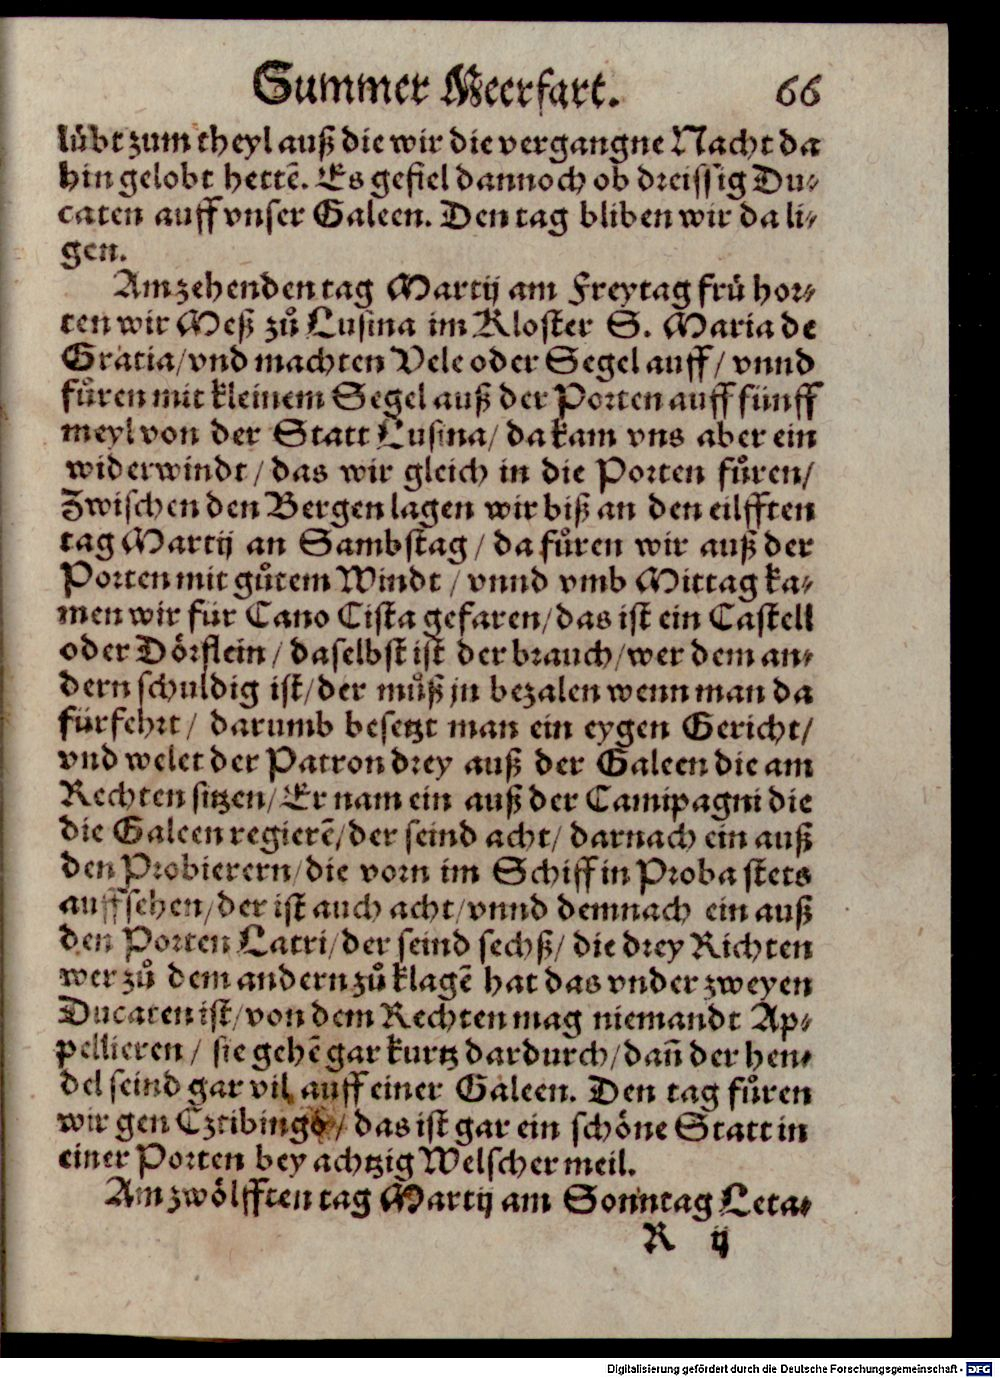 Summer Meerfart. 66
lübt zum theyl auß die wir die vergangne Nacht da
hin gelobt hettẽ. Es gefiel dannoch ob dreissig Du-
caten auff vnser Galeen. Den tag bliben wir da li-
gen.
Am zehenden tag Martij am Freytag frü hor-
ten wir Meß zů Lusina im Kloster S. Maria de
Gratia/vnd machten Vele oder Segel auff/ vnnd
fůren mit kleinem Segel auß der Porten auff fünff
meyl von der Statt Lusina/ da kam vns aber ein
widerwindt/das wir gleich in die Porten fůren/
Zwischen den Bergen lagen wir biß an den eilfften
tag Martij an Sambstag/ da fůren wir auß der
Porten mit gůtem Windt/ vnnd vmb Mittag ka-
men wir für Cano Cista gefaren/das ist ein Castell
oder Dörflein/ daselbst ist der brauch/wer dem an-
dern schuldig ist/der můß jn bezalen wenn man da
fürfehrt/ darumb besetzt man ein eygen Gericht/
vnd welet der Patron drey auß der Galeen die am
Rechten sitzen/Er nam ein auß der Camipagni die
die Galeen regierẽ/der seind acht/ darnach ein auß
den Probierern/die vorn im Schiff in Proba stets
auffsehen/der ist auch acht/vnnd demnach ein auß
den Porten Latri/der seind sechß/ die drey Richten
wer zů dem andern zů klagẽ hat das vnder zweyen
Ducaten ist/von dem Rechten mag niemandt Ap-
pellieren/ sie gehẽ gar kurtz dardurch/dañ der hen-
del seind gar vil auff einer Galeen. Den tag fůren
wir gen Cztibingo/das ist gar ein schöne Statt in
einer Porten bey achtzig Welscher meil.
Am zwölfften tag Martij am Sonntag Leta-
R ij
Digitalisierung gefördert durch die Deutsche Forschungsgemeinschaft - DFG